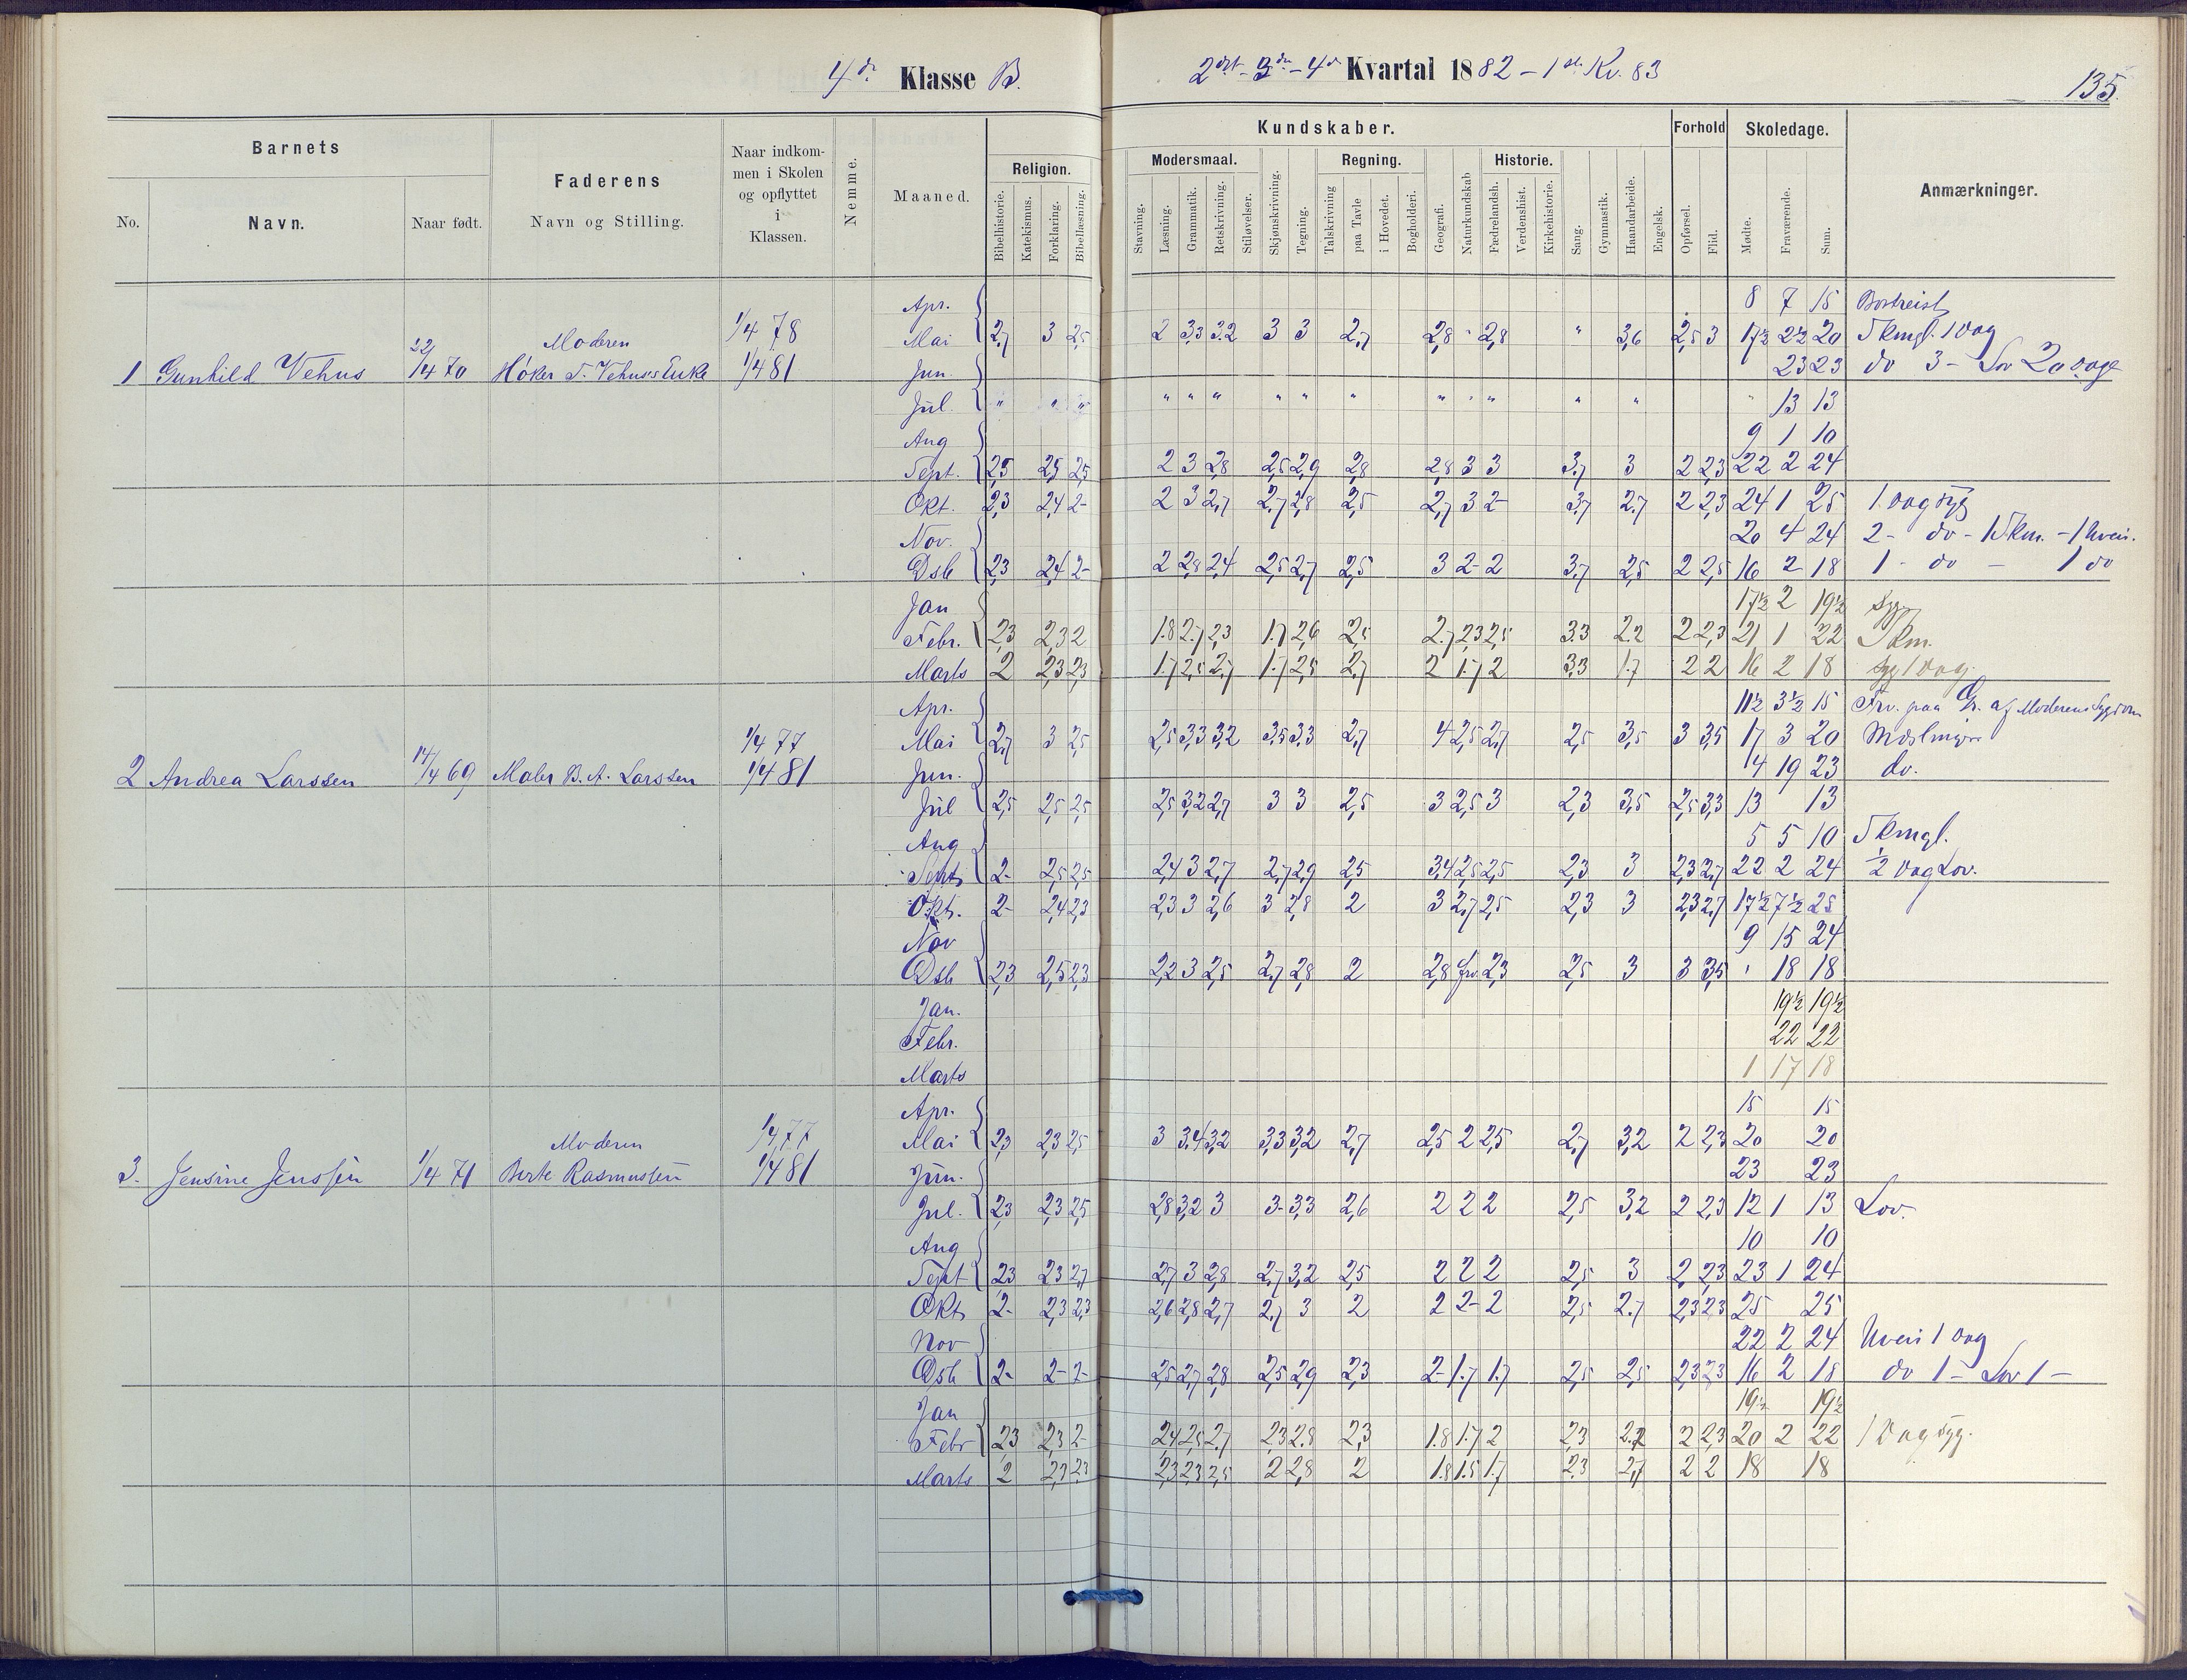 4de Klasse B.
2det - 3die - 4de Kvartal 1882 - 1ste Kv. 83
135.
Barnets
No.
Navn.
Naar født.
Faderens
Navn og Stilling.
Naar indkom-
men i Skolen
og opflyttet
i
Klassen.
Nemme.
Maaned.
Religion.
Bibelhistorie.
Katekismus.
Forklaring.
Bibellæsning.
Kundskaber.
Modersmaal.
Stavning.
Læsning.
Grammatik.
Retskrivning.
Stiløvelser.
Skjønskrivning.
Tegning.
Regning.
Talskrivning
paa Tavle
i Hovedet.
Bogholderi.
Geografi.
Naturkundskab
Historie.
Fædrelandsh.
Verdenshist.
Kirkehistorie.
Sang.
Gymnastik.
Haandarbeide.
Engelsk.
Forhold
Opførsel.
Flid.
Skoledage.
Mødte.
Fraværende.
Sum.
Anmærkninger.
1 Gunhild Vehus 22/4 70 Moderen Høker T. Vehus's Enke 1/4 78 1/4 81
Apr. 8 7 15 Bortreist
Mai 2,7 3 2,5 2 3,3 3.2 3 3 2,7 2,8 " 2,8 " 3,6 2,5 3 17½ 2½ 20 Skmgl. 1 Dag
Jun 23 23 do 3 - Lov 20 Dage
Jul. " " " " " " " " " " " " " " " 13 13
Aug 9 1 10
Sept. 2,5 2,5 2,5 2 3 2,8 2,5 2,9 2,8 2,8 3 3 3,7 3 2 2,3 22 2 24
Okt. 2,3 2,4 2- 2 3 2,7 2,7 2,8 2,5 2,7 3 2- 3,7 2.7 2 2,3 24 1 25 1 Dag syg
Nov. 20 4 24 2- do - 1 Skm. - 1 Uveir.
Dsb 2,3 2,4 2- 2 2,8 2,4 2,5 2,7 2,5 3 2- 2 3,7 2,5 2 2,5 16 2 18 1 - do - 1 do
Jan 17½ 2 19½ Syg
Febr. 2,3 2,3 2 1.8 2.7 2,3 1.7 2,6 2,5 2.7 2,3 2,5 3.3 2.2 2 2,3 21 1 22 Skm.
Marts 2 2,3 2,3 1.7 2,5 2.7 1.7 2,5 2.7 2 1.7 2 3,3 1.7 2 2 16 2 18 Syg 1 Dag.
2 Andrea Larssen 14/4 69 Maler B. A. Larssen 1/4 77 1/4 81
Apr. 11½ 3½ 15 Frv. paa Gr. af Moderens Sygdom
Mai 2,7 3 2,5 2,5 3,3 3,2 3,5 3.3 2,7 4 2,5 2,7 2,5 3,5 3 3,5 17 3 20 Mæslinger
Jun. 14 19 23 do.
Jul 2,5 2,5 2,5 2,5 3,2 2,7 3 3 2,5 3 2,5 3 2,3 3,5 2,5 3,3 13 13
Aug 5 5 10 Skmgl.
Sept. 2- 2,5 2,5 2,4 3 2,7 2,7 2,9 2,5 3,4 2,5 2,5 2,3 3 2,3 2,7 22 2 24 ½ Dag Lov.
Okt. 2- 2,4 2,3 2,3 3 2,6 3 2,8 2 3 2,7 2,5 2,3 3 2,3 2,7 17½ 7½ 25
Nov 9 15 24
Dsb 2,3 2,5 2,3 2,2 3 2,5 2,7 2,8 2 2,8 frv. 2,3 2,5 3 3 3,5 " 18 18
Jan. 19½ 19½
Febr. 22 22
Marts 1 17 18
3. Jensine Jenssen 1/4 71 Moderen Berte Rasmussen 1/4 77 1/4 81
Apr. 15 15
Mai 2,3 2,3 2,5 3 3.4 3,2 3,3 3,2 2,7 2,5 2 2,5 2,7 3,2 2 2,3 20 20
Jun. 23 23
Jul. 2,3 2,3 2,5 2,8 3,2 3 3- 3,3 2,6 2 2 2 2,5 3,2 2 2,3 12 1 13 Lov.
Aug 10 10
Sept 2,3 2,3 2,7 2,7 3 2,8 2,7 3,2 2,5 2 2 2 2,5 3 2 2,3 23 1 24
Okt. 2- 2,3 2,3 2,6 2,8 2,7 2,7 3 2 2 2- 2 2,5 2.7 2,3 2,3 25 25
Nov 22 2 24 Uveir 1 Dag
Dsb 2- 2- 2- 2,5 2,7 2,8 2,5 2,9 2,3 2- 1.7 1.7 2,5 2,5 2,3 2,3 16 2 18 do 1 - Lov 1 -
Jan 19½ 19½
Febr 2,3 2,3 2- 2,4 2,5 2.7 2,3 2,8 2,3 1.8 1.7 2 2,3 2.2 2 2,3 20 2 22 1 Dag syg.
Marts 2 2,3 2,3 2,3 2,3 2,5 2 2,8 2 1.8 1.5 1.7 2.3 2,1 2 2 18 18